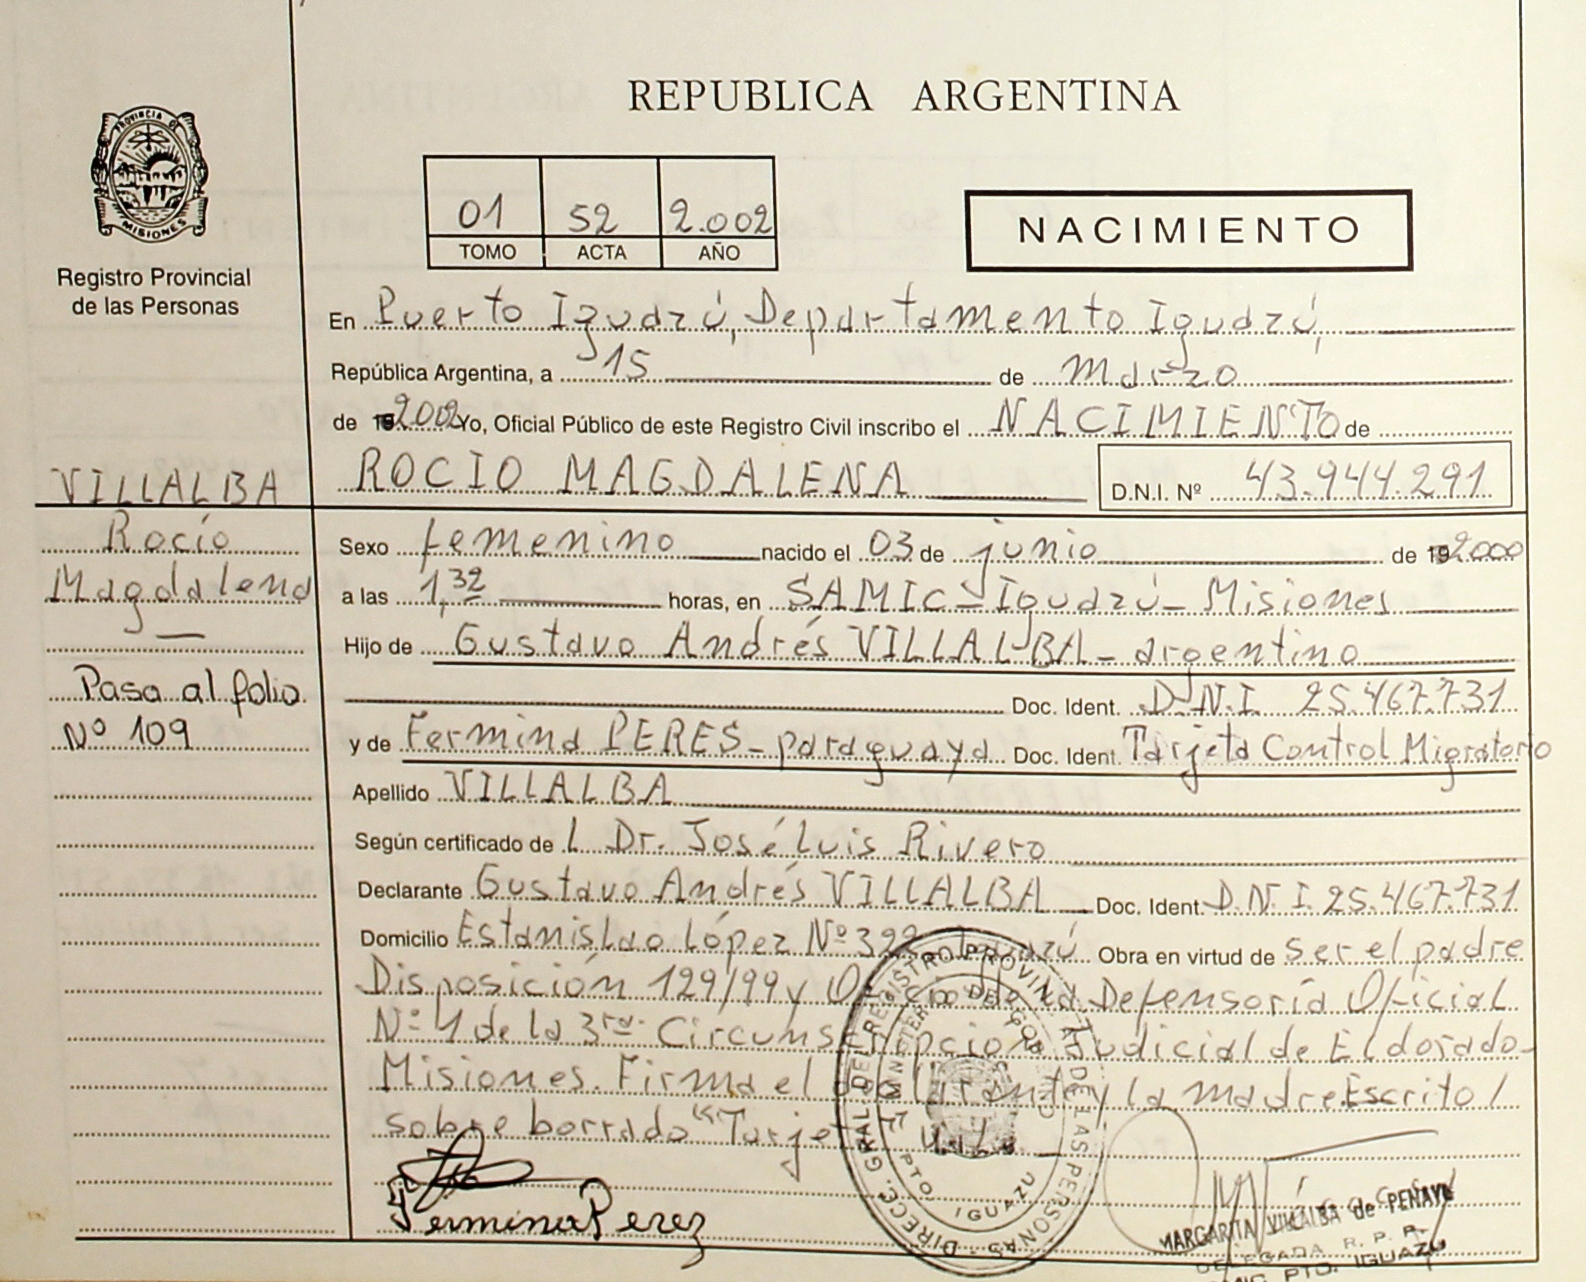 REPUBLICA ARGENTINA
PROVINCIA DE
MISIONES
Registro Provincial
de las Personas
01 52 2.002
TOMO ACTA AÑO
NACIMIENTO
En Puerto Iguazú, Departamento Iguazú,
República Argentina, a 15 de marzo
de 19 2002 Yo, Oficial Público de este Registro Civil inscribo el NACIMIENTO de
VILLALBA
ROCIO MAGDALENA D.N.I. Nº 43.944.291
Rocío
Magdalena
Sexo femenino nacido el 03 de junio de 19 2000
a las 1,32 horas, en SAMIC - Iguazú - Misiones
Hijo de Gustavo Andrés VILLALBA - argentino
Pasa al folio
Nº 109
Doc. Ident. D.N.I. 25.467.731
y de Fermina PERES - paraguaya Doc. Ident. Tarjeta Control Migratorio
Apellido VILLALBA
Según certificado de l Dr. José Luis Rivero
Declarante Gustavo Andrés VILLALBA Doc. Ident. D.N.I. 25.467.731
Domicilio Estanislao López Nº 322 Iguazú Obra en virtud de ser el padre
Disposición 129/99 y Oficio de la Defensoría Oficial
Nº 1 de la 3ra. Circunscripción Judicial de Eldorado-
Misiones. Firma el declarante y la madre Escrito/
sobre borrado "Tarjeta
Fermina Perez
DIRECC. GRAL DEL REGISTRO PROVINCIAL DE LAS PERSONAS
MINISTERIO DE GOBIERNO
PTO. IGUAZU
MARGARITA VILLALBA de PENAYO
DELEGADA R. P. P.
PTO. IGUAZU